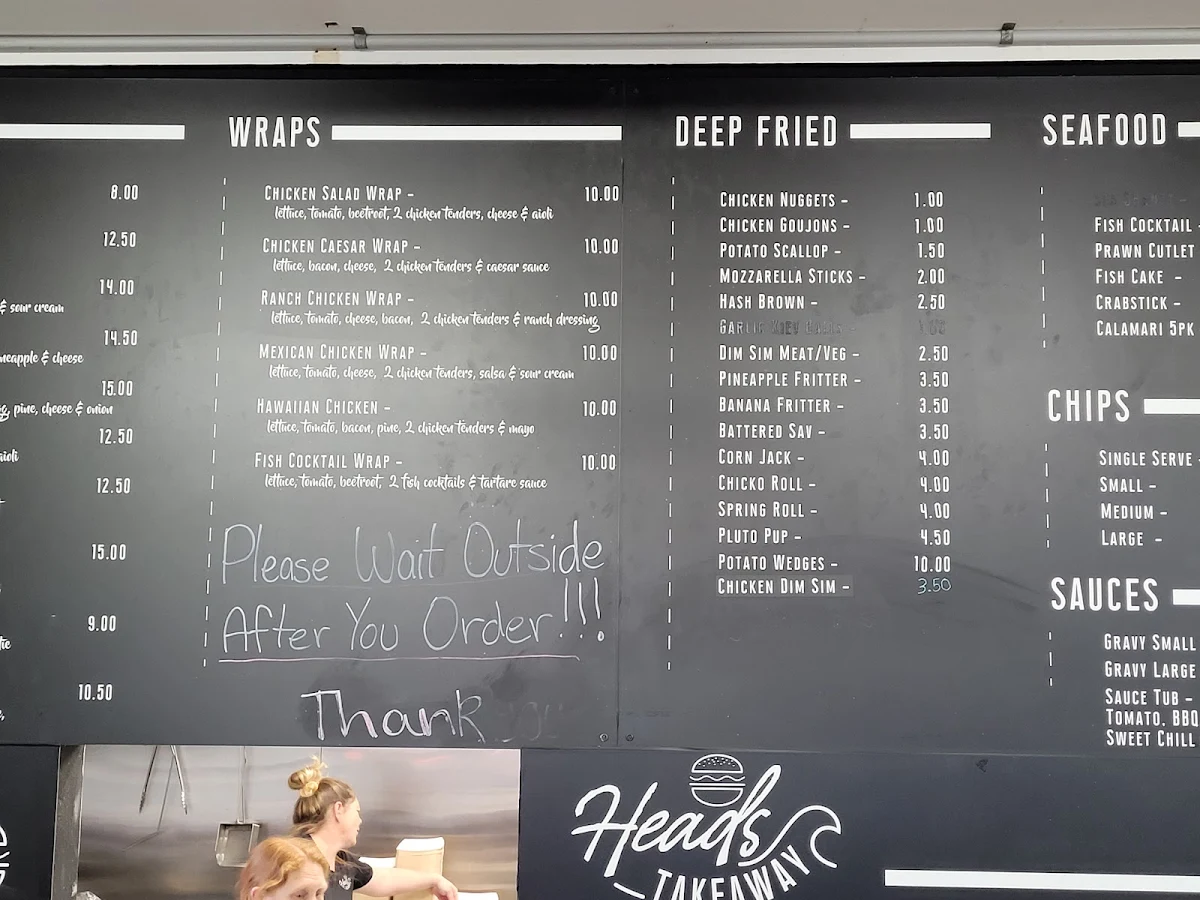 8.00
12.50
14.00
& sour cream
14.50
neapple & cheese
15.00
g, pine, cheese & onion
12.50
aioli
12.50
15.00
9.00
10.50
WRAPS
CHICKEN SALAD WRAP - 10.00
lettuce, tomato, beetroot, 2 chicken tenders, cheese & aioli
CHICKEN CAESAR WRAP - 10.00
lettuce, bacon, cheese, 2 chicken tenders & caesar sauce
RANCH CHICKEN WRAP - 10.00
lettuce, tomato, cheese, bacon, 2 chicken tenders & ranch dressing
MEXICAN CHICKEN WRAP - 10.00
lettuce, tomato, cheese, 2 chicken tenders, salsa & sour cream
HAWAIIAN CHICKEN - 10.00
lettuce, tomato, bacon, pine, 2 chicken tenders & mayo
FISH COCKTAIL WRAP - 10.00
lettuce, tomato, beetroot, 2 fish cocktails & tartare sauce
Please Wait Outside
After You Order!!!
Thank
DEEP FRIED
CHICKEN NUGGETS - 1.00
CHICKEN GOUJONS - 1.00
POTATO SCALLOP - 1.50
MOZZARELLA STICKS - 2.00
HASH BROWN - 2.50
DIM SIM MEAT/VEG - 2.50
PINEAPPLE FRITTER - 3.50
BANANA FRITTER - 3.50
BATTERED SAV - 3.50
CORN JACK - 4.00
CHICKO ROLL - 4.00
SPRING ROLL - 4.00
PLUTO PUP - 4.50
POTATO WEDGES - 10.00
CHICKEN DIM SIM - 3.50
SEAFOOD
FISH COCKTAIL -
PRAWN CUTLET
FISH CAKE -
CRABSTICK -
CALAMARI 5PK
CHIPS
SINGLE SERVE -
SMALL -
MEDIUM -
LARGE -
SAUCES
GRAVY SMALL
GRAVY LARGE
SAUCE TUB -
TOMATO, BBQ
SWEET CHILL
Heads
TAKEAWAY